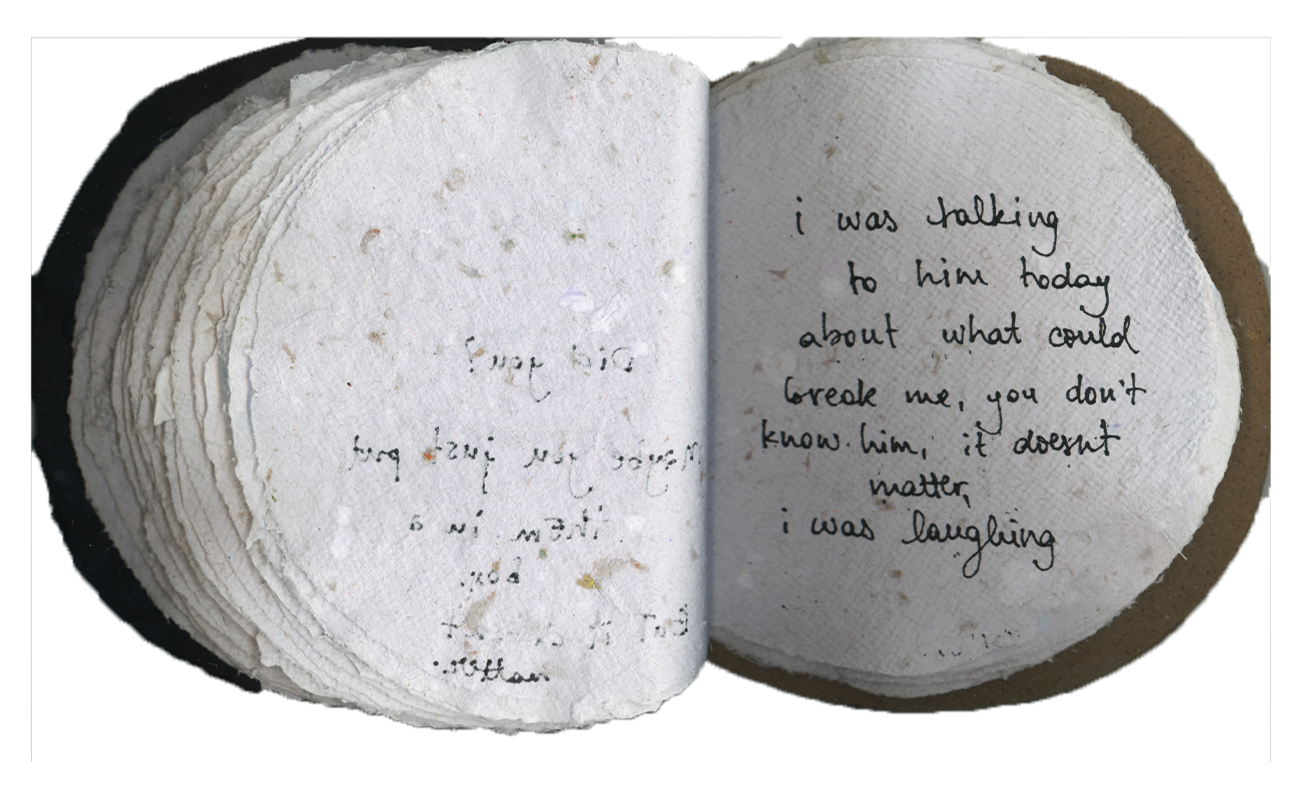 Did you?
Maybe you just put
them in a
box.
But it doesnt
matter.
i was talking
to him today
about what could
break me, you don't
know him, it doesnt
matter,
i was laughing